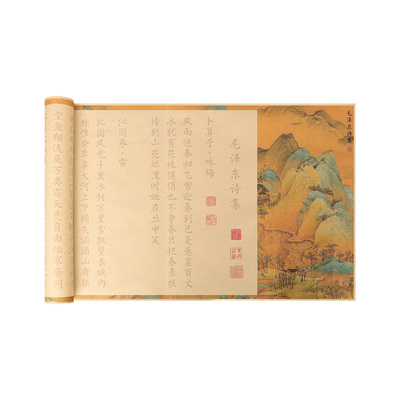 毛泽东诗集
毛泽东诗集
卜算子·咏梅
风雨送春归飞雪迎春到已是悬崖百丈
冰犹有花枝俏俏也不争春只把春来报
待到山花烂漫时她在丛中笑
沁园春·雪
北国风光千里冰封万里雪飘望长城内
外惟余莽莽大河上下顿失滔滔山舞银
空鱼翔浅底万类霜天竞自由怅寥廓问